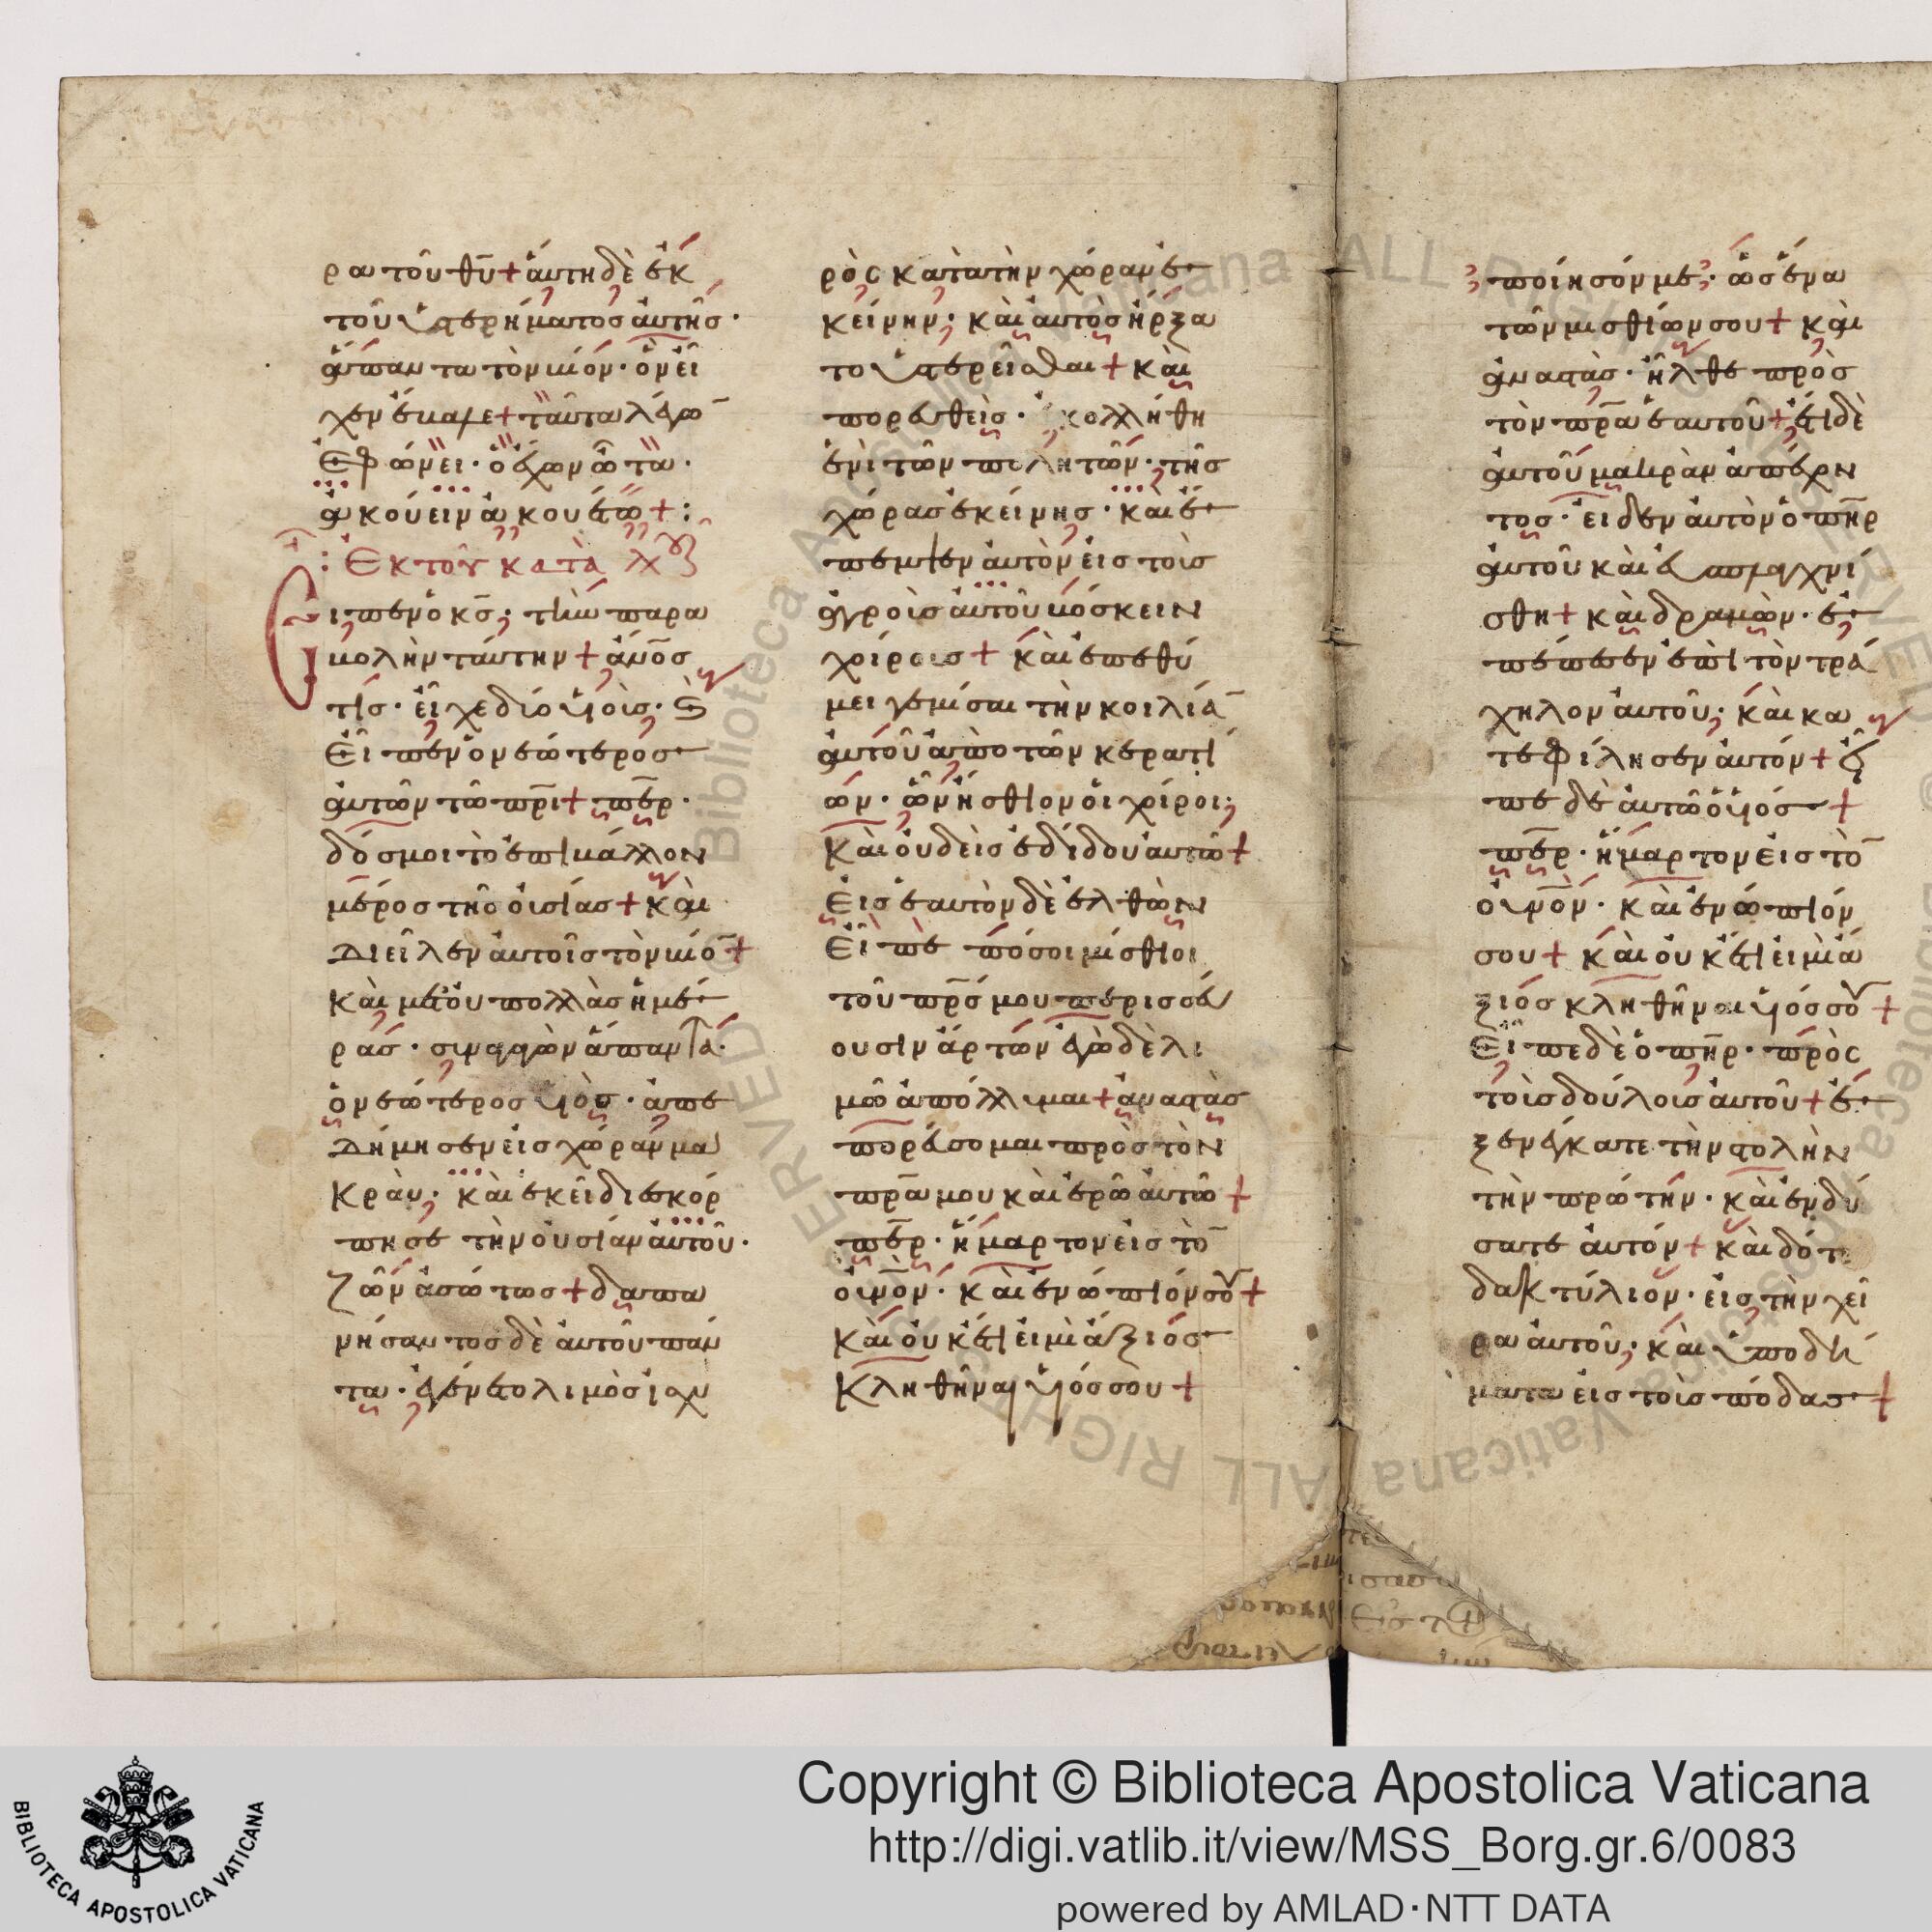 ρα τοῦ θ̅υ̅ + ἅυτη δὲ ἐκ
τοῦ ὑστερήματοσ ἀυτῆσ ·
ἅπαντα τὸν βίον · ὃν εἶ
χεν ἔβαλε + ταῦτα λέγω̅
Ἐφώνει · ὁ ἔχων ὦτα ·
ἀκούειν ἀκουέτω + :
: Ἐκ τοῦ κατὰ λου
ειπεν ὁ κ̅ς̅ · τὴν παρα
βολὴν ταύτην + ἄν̅οσ
τίσ · εἶχε δίο ὑιοὶσ · ϗ
Εἶπεν ὁ νεώτεροσ
ἀυτῶν τῶ π̅ρ̅ι̅ + π̅ε̅ρ̅ ·
δόσ μοι τὸ ἐπιβάλλον
μέροσ τῆσ οἰσίασ + καὶ
Διεῖλεν ἀυτοῖσ τὸν βίο̅ +
Καὶ μετ' ὀυ πολλὰσ ἡμέ
ράσ · σιναγαγὼν ἅπαντα ·
ὁ νεώτεροσ ὑιὸσ · ἀπε
Δήμησεν εἰσ χώραν μα
Κράν · καὶ ἐκεῖ διεσκόρ
πησε τὴν ὀυσίαν ἀυτοῦ ·
Ζῶν ἀσώτωσ + δαπα
νήσαντοσ δὲ ἀυτοῦ πάν
τα · ἐγένετο λιμὸσ ἰσχυ
ρὸς κατὰ τὴν χώραν ἐ
κείνην · καὶ ἀυτὸσ ἤρξα
το ὑστερεῖσθαι + καὶ
πορευθεὶσ · ἐκολλήθη
ἑνὶ τῶν πολητῶν · τῆσ
χώρασ ἐκείνησ · καὶ ἔ
πεμψεν ἀυτὸν εἰσ τοὶσ
ἀγροὶσ ἀυτοῦ βόσκειν
χοίροισ + Καὶ ἐπεθύ
μει γεμίσαι τὴν κοιλία̅
ἀυτοῦ ἀπὸ τῶν κερατί
ων · ὧν ἤσθιον ὁι χοίροι ·
Καὶ ὀυδεὶσ ἐδίδου ἀυτῶ +
Εἰσ ἑαυτὸν δὲ ἐλθὼν
Εἶπε πόσοι μίσθιοι
τοῦ π̅ρ̅σ̅ μου περισσεύ
ουσιν ἄρτων ἐγὼ δὲ λι
μῶ ἀπόλλιμαι + ἀναστὰσ
πορεύσομαι πρὸσ τὸν
π̅ρ̅α̅ μου καὶ ἐρῶ ἀυτῶ +
π̅ε̅ρ̅ · ἥμαρτον εἰσ τὸ̅
ὀυ̅ν̅ό̅ν · Καὶ ἐνώπιόν σου +
Καὶ ὀυκέτι εἰμὶ ἄξιόσ
Κληθῆναι ὑιόσ σου +
ποίησόν με · ὡσ ἕνα
τῶν μισθίων σου + καὶ
ἀναστὰσ · ἦλθε πρὸσ
τὸν π̅ρ̅α̅ ἑαυτοῦ + ἔτι δὲ
ἀυτοῦ μακρὰν ἀπέχον
τοσ · εἶδεν ἀυτὸν ὁ π̅η̅ρ̅
ἀυτοῦ καὶ ἐυσπλαχνί
σθη + καὶ δραμὼν · ἐ
πέπεσεν ἐπὶ τὸν τρά
χηλον ἀυτοῦ · καὶ κα
τεφίλησεν ἀυτόν + εἶ
πε δὲ ἀυτῶ ὁ ὑιόσ +
π̅ε̅ρ̅ · ἥμαρτον εἰσ τὸ̅
ὀυ̅ν̅ό̅ν · καὶ ἐνώπιόν
σου + Καὶ ὀυκέτι εἰμὶ ἄ
ξιόσ κληθῆναι ὑιόσ σου +
Εἶπε δὲ ὁ π̅η̅ρ̅ · πρὸς
τοὶσ δούλοισ ἀυτοῦ + ἐ
ξενέγκατε τὴν στολὴν
τὴν πρώτην · καὶ ἐνδύ
σατε ἀυτόν + Καὶ δότε
δακτύλιον · εἰσ τὴν χεῖ
ρα ἀυτοῦ · καὶ ὑποδή
ματα εἰσ τοὶσ πόδασ +
Copyright © Biblioteca Apostolica Vaticana
http://digi.vatlib.it/view/MSS_Borg.gr.6/0083
powered by AMLAD·NTT DATA
BIBLIOTECA APOSTOLICA VATICANA